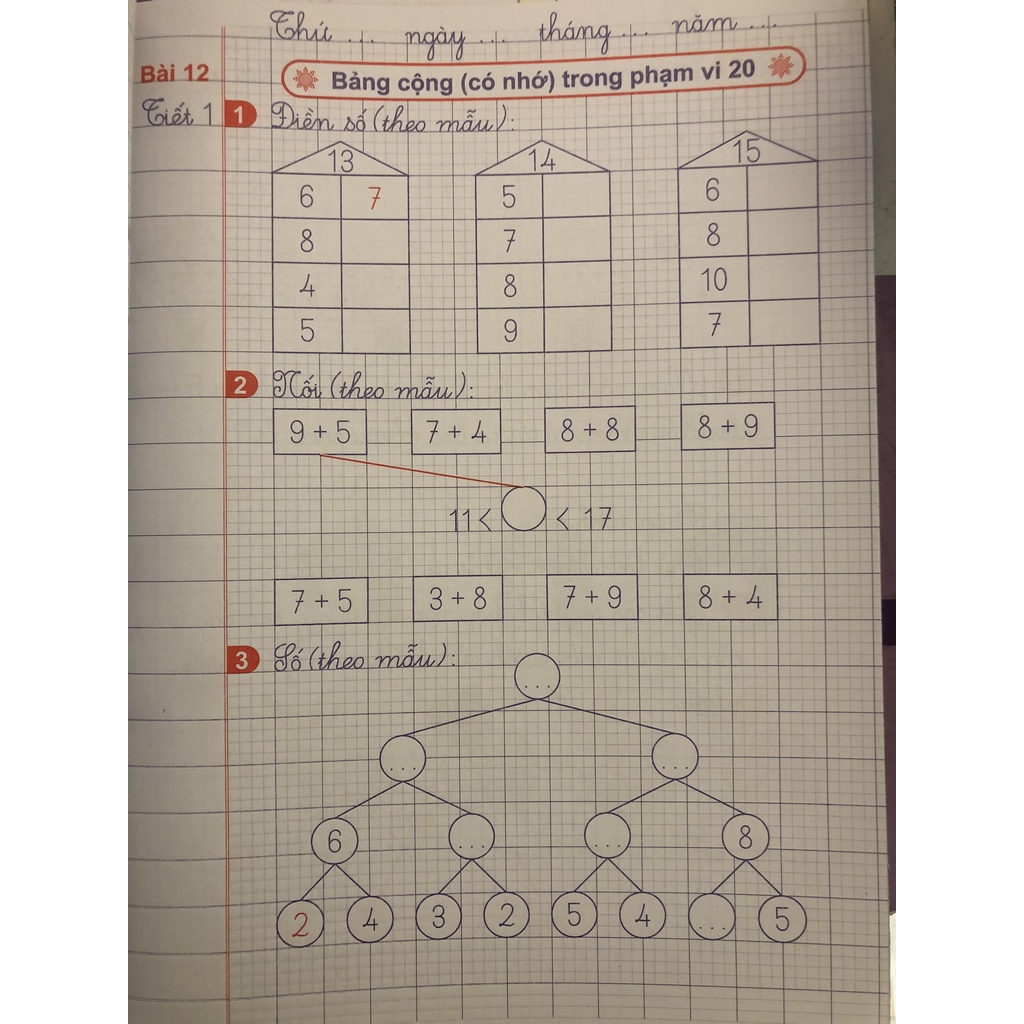 Thứ ... ngày ... tháng ... năm ...
Bài 12 Bảng cộng (có nhớ) trong phạm vi 20
Tiết 1 1 Điền số (theo mẫu):
13 14 15
6 7 5 6
8 7 8
4 8 10
5 9 7
2 Nối (theo mẫu):
9 + 5 7 + 4 8 + 8 8 + 9
11 < < 17
7 + 5 3 + 8 7 + 9 8 + 4
3 Số (theo mẫu):
...
... ...
6 ... ... 8
2 4 3 2 5 4 ... 5